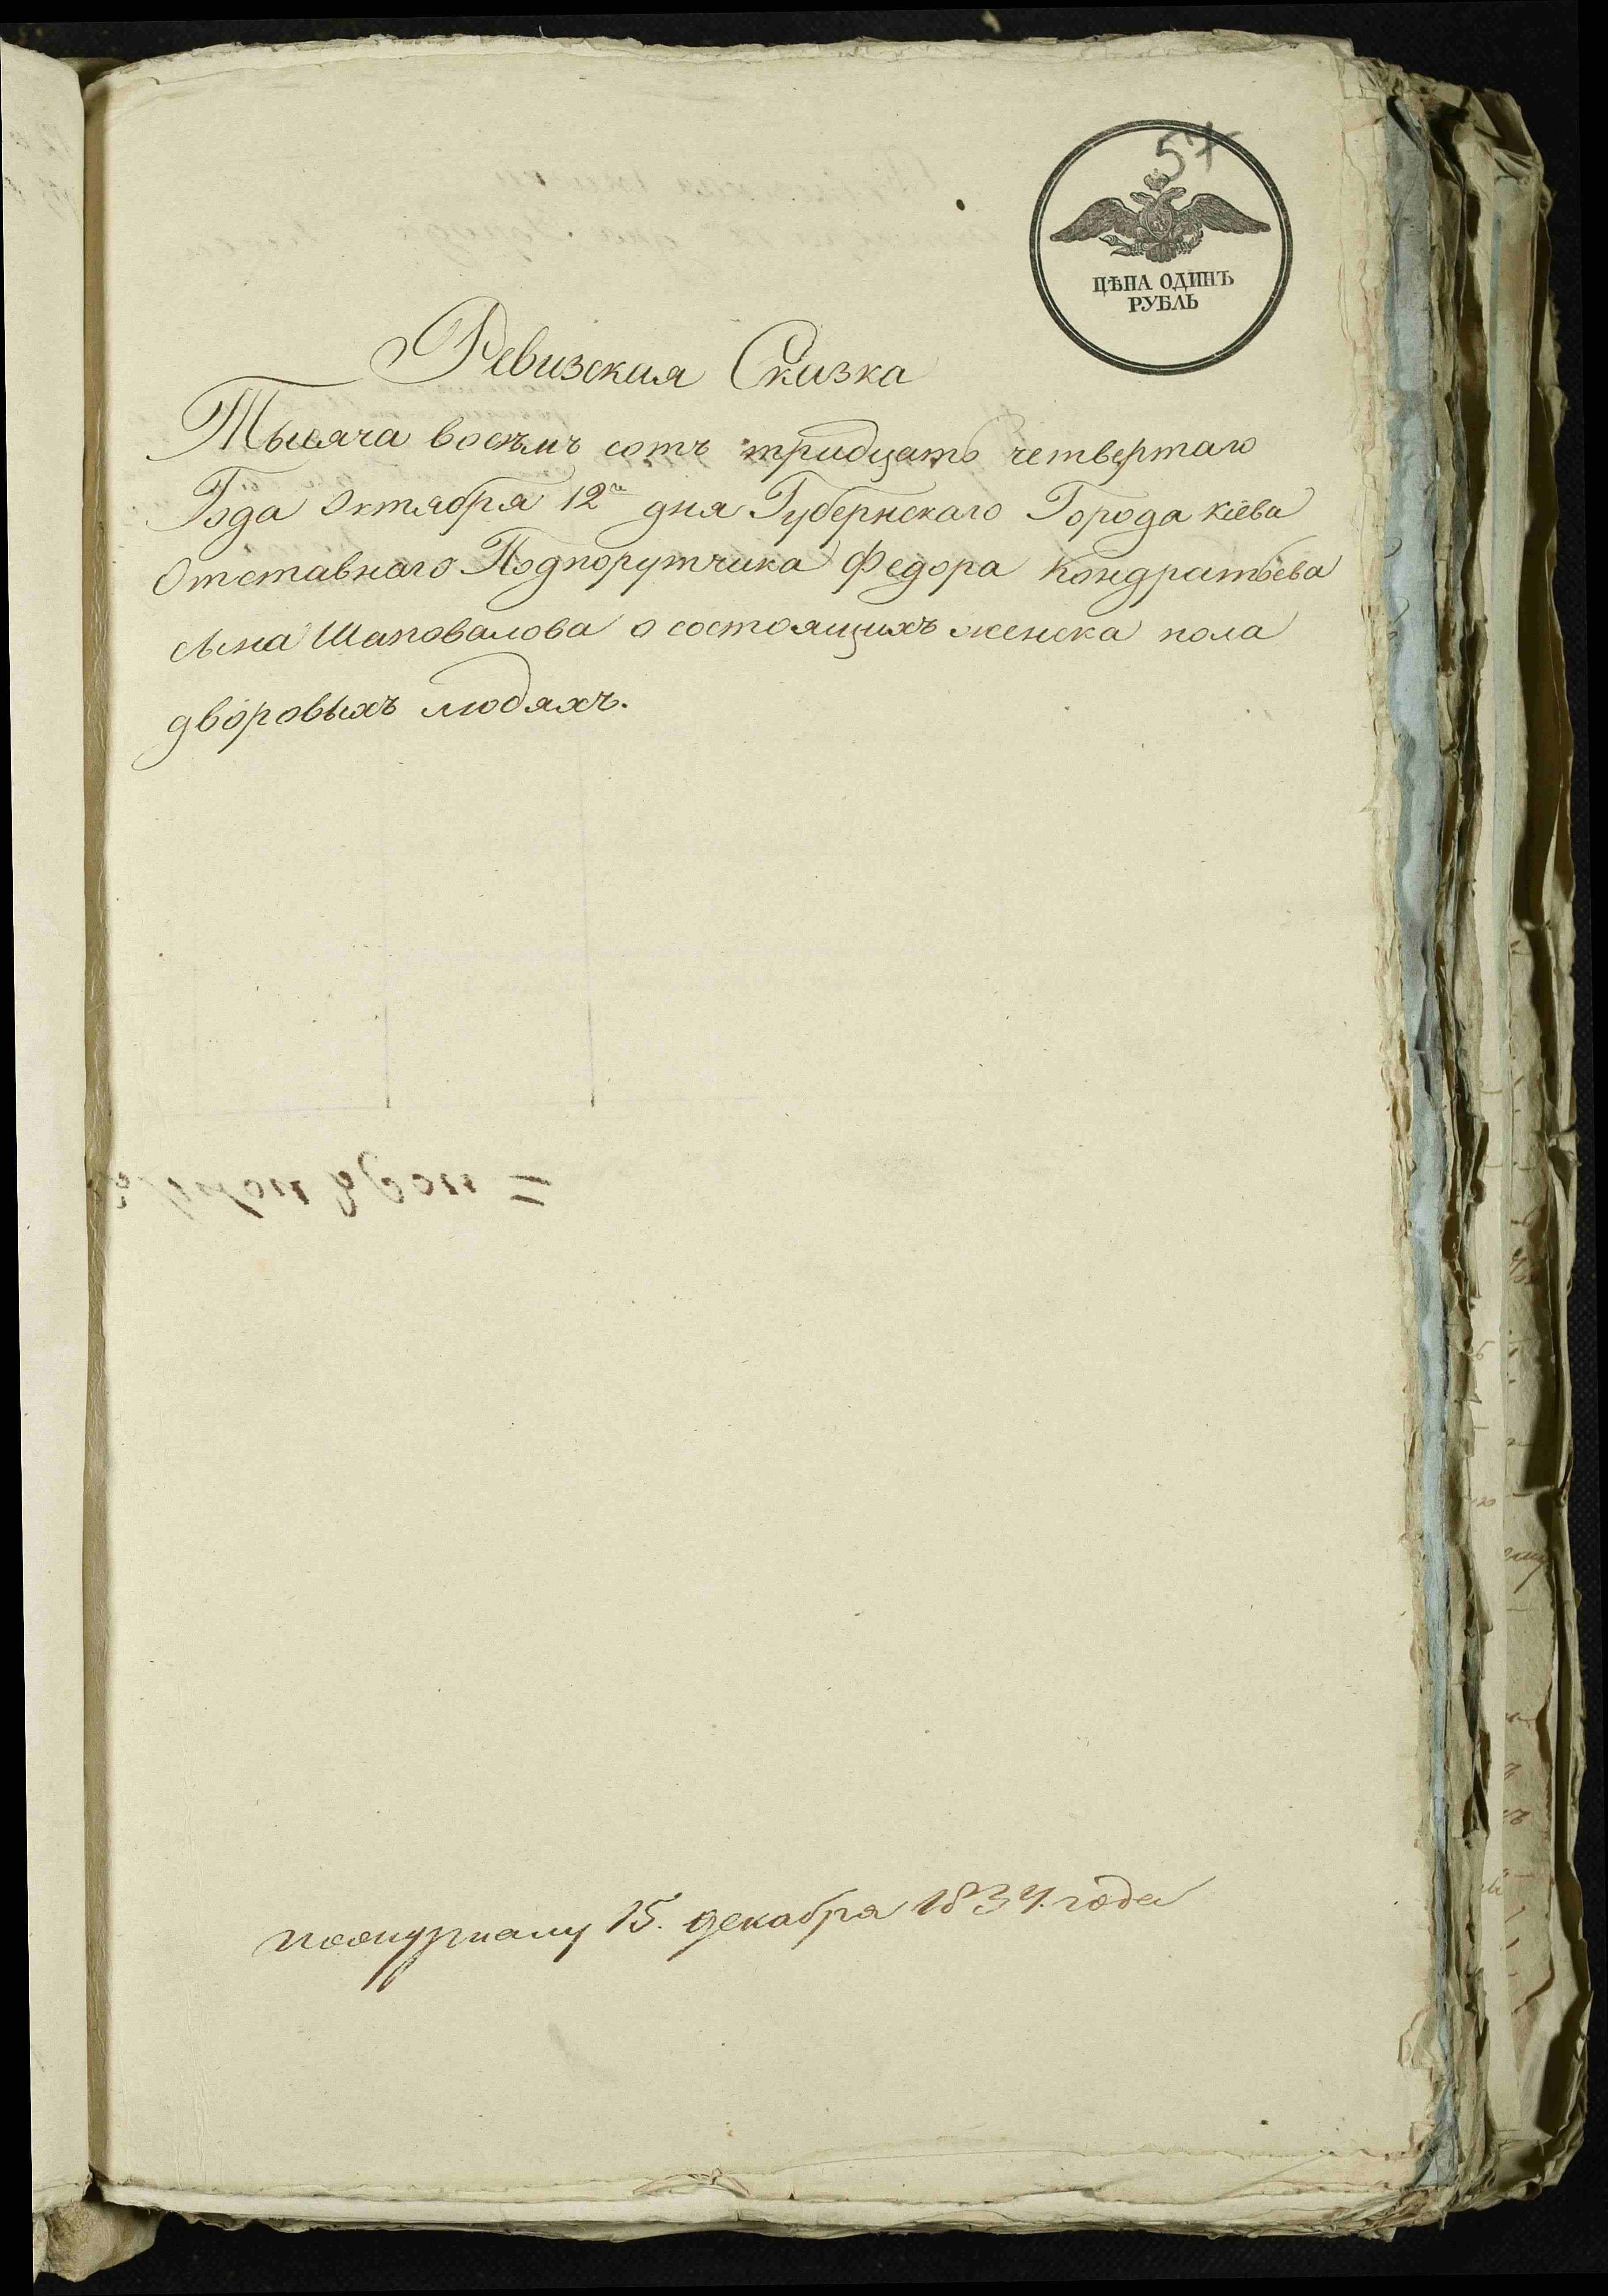 57
ЦѢНА ОДИНЪ
РУБЛЬ
Ревизская Сказка
Тысяча восемь сотъ тридцать четвертаго
Года Октября 12го дня Губернскаго Города Кіева
Отставнаго Подпорутчика Федора Кондратьева
сына Шаповалова о состоящихъ женска пола
дворовыхъ людяхъ.
пожурналу 15. декабря 1834. года